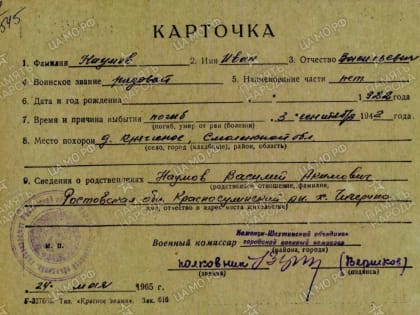 545
КАРТОЧКА
1. Фамилия Наумов 2. Имя Иван 3. Отчество Васильевич
4. Воинское звание рядовой 5. Наименование части нет
6. Дата и год рождения " " 1922 года
7. Время и причина выбытия погиб 3 сентября 1942 года
(погиб, умер от ран (болезни)
8. Место похорон д. Смоленской обл.
(село, город (кладбище), район, область)
9. Сведения о родственниках Наумов Василий Акимович
(родственное отношение, фамилия,
Ростовская обл. Красносулинский рн. х. Чичерино
имя, отчество и адрес места жительства)
М. П.
Военный комиссар Каменско-Шахтинский объединен.
городской военный комиссар
(района, города)
полковник (Вершков)
(звание) (подпись)
24 мая 1965 г.
Тип. «Красное знамя». Зак. 616
ЦАМО.РФ